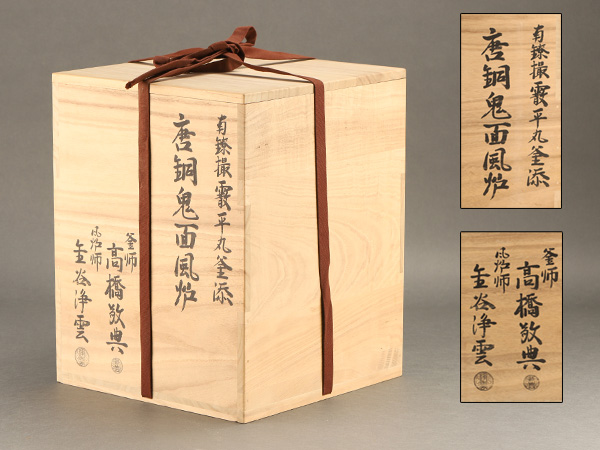 南鐐撮霰平丸釜添
唐銅鬼面風炉
釜師
高橋敬典
風炉師
金谷浄雲
南鐐撮霰平丸釜添
唐銅鬼面風炉
釜師
高橋敬典
風炉師
金谷浄雲